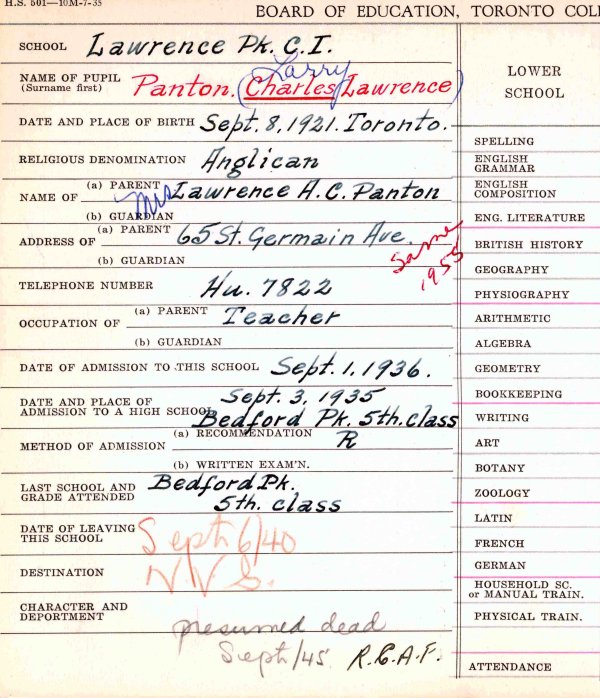 H.S. 501—10M-7-35
BOARD OF EDUCATION, TORONTO COL
SCHOOL Lawrence Pk. C. I.
Larry
NAME OF PUPIL (Surname first) Panton. (Charles Lawrence)
DATE AND PLACE OF BIRTH Sept. 8, 1921. Toronto.
RELIGIOUS DENOMINATION Anglican
NAME OF (a) PARENT Mrs Lawrence A. C. Panton
(b) GUARDIAN
ADDRESS OF (a) PARENT 65 St. Germain Ave. Same 1955
(b) GUARDIAN
TELEPHONE NUMBER Hu. 7822
OCCUPATION OF (a) PARENT Teacher
(b) GUARDIAN
DATE OF ADMISSION TO THIS SCHOOL Sept. 1, 1936.
DATE AND PLACE OF ADMISSION TO A HIGH SCHOOL Sept. 3, 1935
Bedford Pk. 5th. class
METHOD OF ADMISSION (a) RECOMMENDATION R
(b) WRITTEN EXAM'N.
LAST SCHOOL AND GRADE ATTENDED Bedford Pk.
5th. class
DATE OF LEAVING THIS SCHOOL Sept 6/40
DESTINATION N V S.
CHARACTER AND DEPORTMENT
presumed dead
Sept/45 R.C.A.F.
LOWER
SCHOOL
SPELLING
ENGLISH GRAMMAR
ENGLISH COMPOSITION
ENG. LITERATURE
BRITISH HISTORY
GEOGRAPHY
PHYSIOGRAPHY
ARITHMETIC
ALGEBRA
GEOMETRY
BOOKKEEPING
WRITING
ART
BOTANY
ZOOLOGY
LATIN
FRENCH
GERMAN
HOUSEHOLD SC.
or MANUAL TRAIN.
PHYSICAL TRAIN.
ATTENDANCE